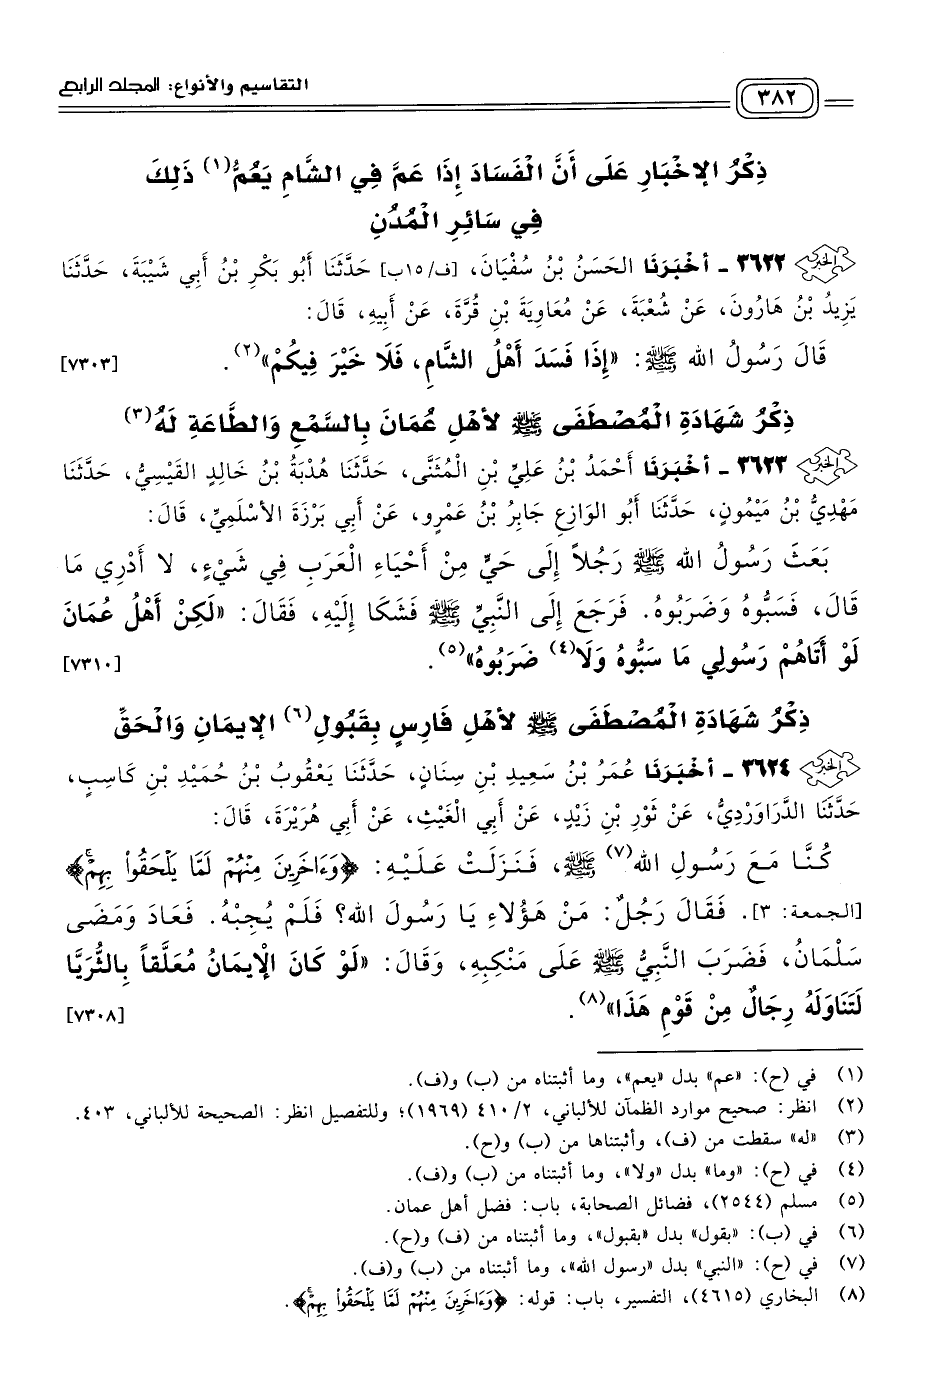 ٣٨٢
التقاسيم والأنواع: المجلد الرابع
ذِكْرُ الإخْبَارِ عَلَى أَنَّ الْفَسَادَ إِذَا عَمَّ فِي الشَّامِ يَعُمُّ(١) ذَلِكَ
فِي سَائِرِ الْمُدُنِ
الخبر ٣٦٢٢ - أخْبَرَنَا الحَسَنُ بْنُ سُفْيَانَ، [ف/١٥ب] حَدَّثَنَا أَبُو بَكْرِ بْنُ أَبِي شَيْبَةَ، حَدَّثَنَا
يَزِيدُ بْنُ هَارُونَ، عَنْ شُعْبَةَ، عَنْ مُعَاوِيَةَ بْنِ قُرَّةَ، عَنْ أَبِيهِ، قَالَ:
قَالَ رَسُولُ الله ﷺ: «إِذَا فَسَدَ أَهْلُ الشَّامِ، فَلَا خَيْرَ فِيكُمْ»(٢). [٧٣٠٣]
ذِكْرُ شَهَادَةِ الْمُصْطَفَى ﷺ لأهْلِ عُمَانَ بِالسَّمْعِ وَالطَّاعَةِ لَهُ(٣)
الخبر ٣٦٢٣ - أخْبَرَنَا أَحْمَدُ بْنُ عَلِيِّ بْنِ الْمُثَنَّى، حَدَّثَنَا هُدْبَةُ بْنُ خَالِدٍ القَيْسِيُّ، حَدَّثَنَا
مَهْدِيُّ بْنُ مَيْمُونٍ، حَدَّثَنَا أَبُو الوَازِعِ جَابِرُ بْنُ عَمْرٍو، عَنْ أَبِي بَرْزَةَ الأسْلَمِيِّ، قَالَ:
بَعَثَ رَسُولُ الله ﷺ رَجُلاً إِلَى حَيٍّ مِنْ أَحْيَاءِ الْعَرَبِ فِي شَيْءٍ، لا أَدْرِي مَا
قَالَ، فَسَبُّوهُ وَضَرَبُوهُ. فَرَجَعَ إِلَى النَّبِيِّ ﷺ فَشَكَا إِلَيْهِ، فَقَالَ: «لَكِنْ أَهْلُ عُمَانَ
لَوْ أَتَاهُمْ رَسُولِي مَا سَبُّوهُ وَلَا(٤) ضَرَبُوهُ»(٥). [٧٣١٠]
ذِكْرُ شَهَادَةِ الْمُصْطَفَى ﷺ لأهْلِ فَارِسٍ بِقَبُولِ(٦) الإيمَانِ وَالْحَقِّ
الخبر ٣٦٢٤ - أخْبَرَنَا عُمَرُ بْنُ سَعِيدِ بْنِ سِنَانٍ، حَدَّثَنَا يَعْقُوبُ بْنُ حُمَيْدِ بْنِ كَاسِبٍ،
حَدَّثَنَا الدَّرَاوَرْدِيُّ، عَنْ ثَوْرِ بْنِ زَيْدٍ، عَنْ أَبِي الْغَيْثِ، عَنْ أَبِي هُرَيْرَةَ، قَالَ:
كُنَّا مَعَ رَسُولِ الله(٧) ﷺ، فَنَزَلَتْ عَلَيْهِ: ﴿وَءَاخَرِينَ مِنْهُمْ لَمَّا يَلْحَقُواْ بِهِمْۚ﴾
[الجمعة: ٣]. فَقَالَ رَجُلٌ: مَنْ هَؤُلاءِ يَا رَسُولَ الله؟ فَلَمْ يُجِبْهُ. فَعَادَ وَمَضَى
سَلْمَانُ، فَضَرَبَ النَّبِيُّ ﷺ عَلَى مَنْكِبِهِ، وَقَالَ: «لَوْ كَانَ الإيمَانُ مُعَلَّقاً بِالثُّرَيَّا
لَتَنَاوَلَهُ رِجَالٌ مِنْ قَوْمِ هَذَا»(٨). [٧٣٠٨]
(١) في (ح): «عم» بدل «يعم»، وما أثبتناه من (ب) و(ف).
(٢) انظر: صحيح موارد الظمآن للألباني، ٤١٠/٢ (١٩٦٩)؛ وللتفصيل انظر: الصحيحة للألباني، ٤٠٣.
(٣) «له» سقطت من (ف)، وأثبتناها من (ب) و(ح).
(٤) في (ح): «وما» بدل «ولا»، وما أثبتناه من (ب) و(ف).
(٥) مسلم (٢٥٤٤)، فضائل الصحابة، باب: فضل أهل عمان.
(٦) في (ب): «بقول» بدل «بقبول»، وما أثبتناه من (ف) و(ح).
(٧) في (ح): «النبي» بدل «رسول الله»، وما أثبتناه من (ب) و(ف).
(٨) البخاري (٤٦١٥)، التفسير، باب: قوله: ﴿وَءَاخَرِينَ مِنْهُمْ لَمَّا يَلْحَقُواْ بِهِمْۚ﴾.